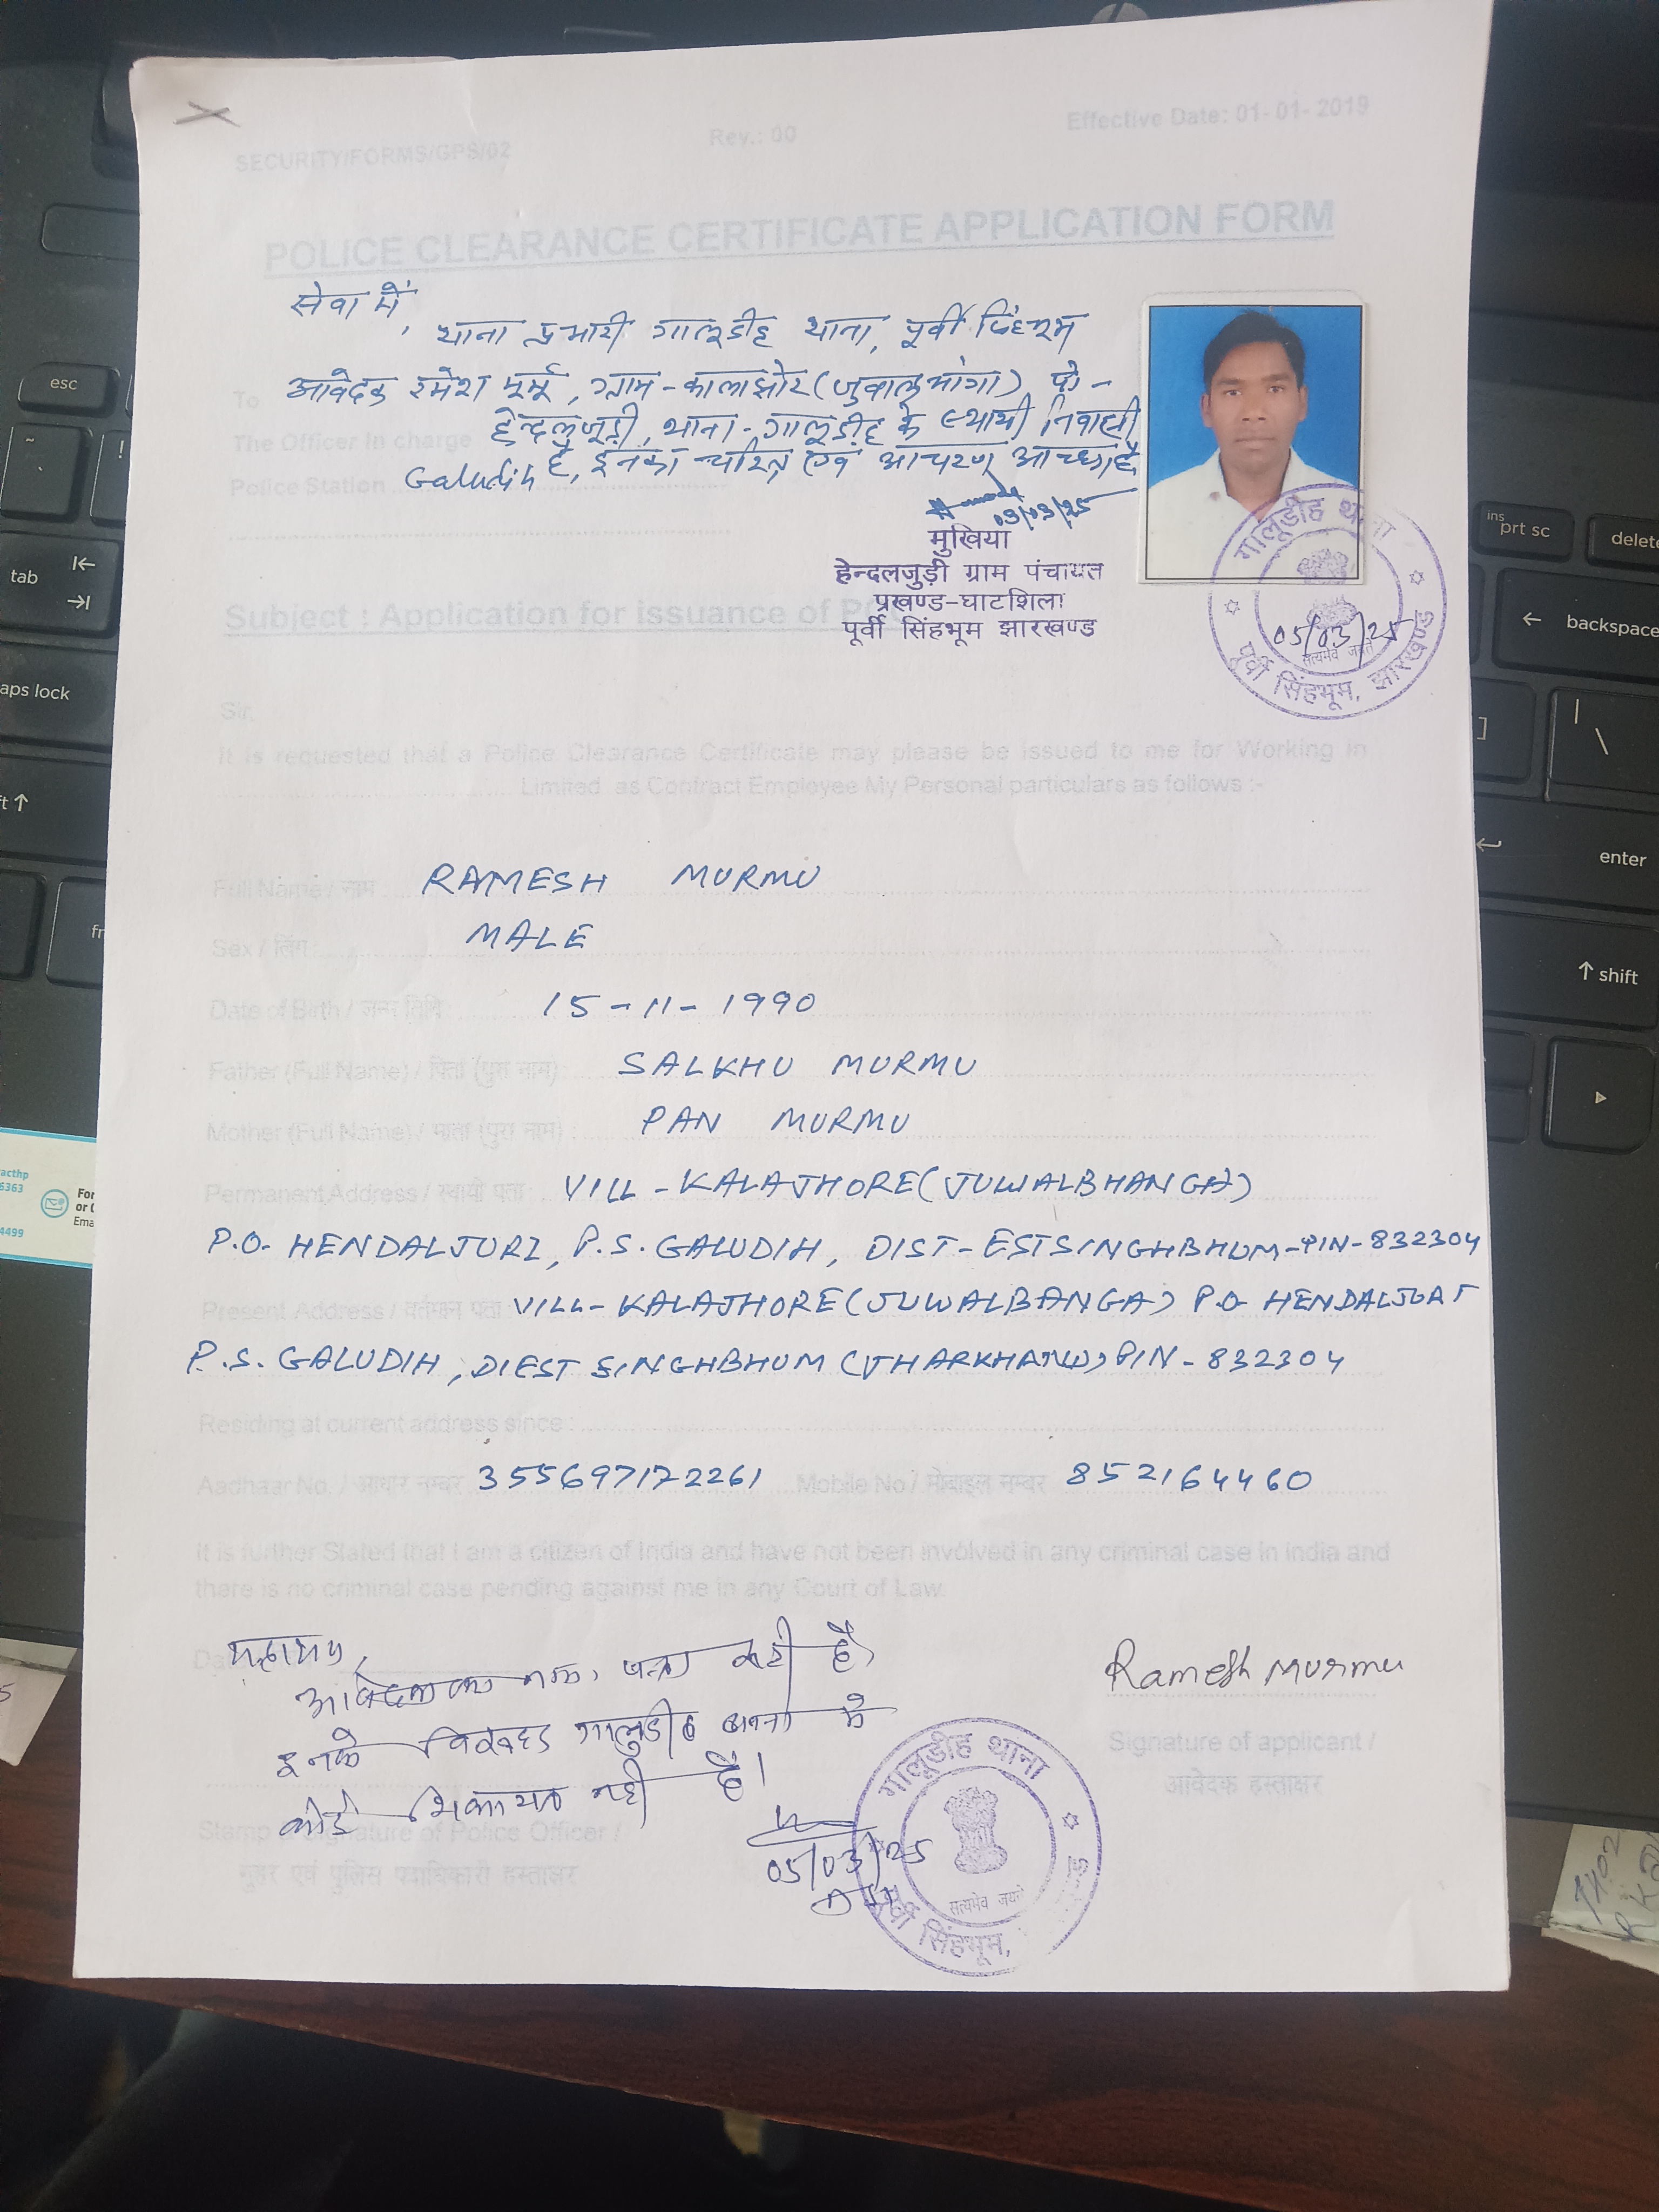 SECURITY/FORMS/GPS/02
Rev.: 00
Effective Date: 01-01-2019
POLICE CLEARANCE CERTIFICATE APPLICATION FORM
सेवा में,
थाना प्रभारी गालूडीह थाना, पूर्वी सिंहभूम
आवेदक रमेश मुर्मू, ग्राम-कालाझोर(जुवालभांगा), पो-
हेन्दलजुड़ी, थाना-गालूडीह के स्थायी निवासी
है, इनका चरित्र एवं आचरण अच्छा है
To
The Officer In charge
Police Station Galudih
03/03/25
मुखिया
हेन्दलजुड़ी ग्राम पंचायत
प्रखण्ड-घाटशिला
पूर्वी सिंहभूम झारखण्ड
गालूडीह थाना
05/03/25
सत्यमेव जयते
पूर्वी सिंहभूम, झारखण्ड
Subject : Application for issuance of
Sir,
It is requested that a Police Clearance Certificate may please be issued to me for Working in
Limited as Contract Employee My Personal particulars as follows :-
Full Name / नाम RAMESH MURMU
Sex / लिंग MALE
Date of Birth / जन्म तिथि 15-11-1990
Father (Full Name) / पिता (पुरा नाम) SALKHU MURMU
Mother (Full Name) / माता (पुरा नाम) : PAN MURMU
Permanent Address / स्थायी पता VILL-KALAJHORE(JUWALBHANGA)
P.O- HENDALJURI, P.S. GALUDIH, DIST-ESTSINGHBHUM-PIN-832304
Present Address / वर्तमान पता VILL-KALAJHORE(JUWALBANGA) P.O HENDALJURI
P.S. GALUDIH, DIEST SINGHBHUM (JHARKHAND) PIN-832304
Residing at current address since :
Aadhaar No. / आधार नम्बर 355697172261 Mobile No / मोबाइल नम्बर 852164460
It is further Stated that I am a citizen of India and have not been involved in any criminal case in India and
there is no criminal case pending against me in any Court of Law.
महाशय,
आवेदक का नाम, पता सही है,
इनके विरुद्ध गालुडीह थाना में
कोई शिकायत नहीं है।
Ramesh Murmu
Signature of applicant /
आवेदक हस्ताक्षर
Stamp & Signature of Police Officer /
मुहर एवं पुलिस पदाधिकारी हस्ताक्षर
05/03/25
गालूडीह थाना
सत्यमेव जयते
पूर्वी सिंहभूम,
esc
tab
caps lock
ins
prt sc
delete
backspace
enter
shift